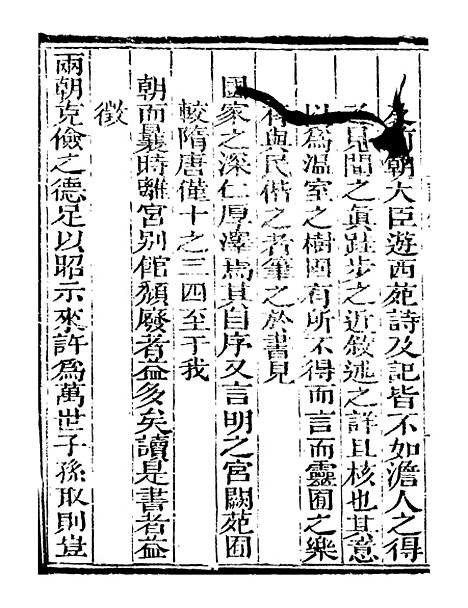 朝大臣遊西苑詩及記皆不如澹人之得
見聞之眞跬步之近敘述之詳且核也其意
以爲温室之樹固有所不得而言而靈囿之樂
與民偕之者筆之於書見
國家之深仁厚澤焉其自序又言明之宮闕苑囿
較隋唐僅十之三四至于我
朝而曩時離宮别館頽廢者益多矣讀是書者益
徵
兩朝克儉之德足以昭示來許爲萬世子孫取則豈